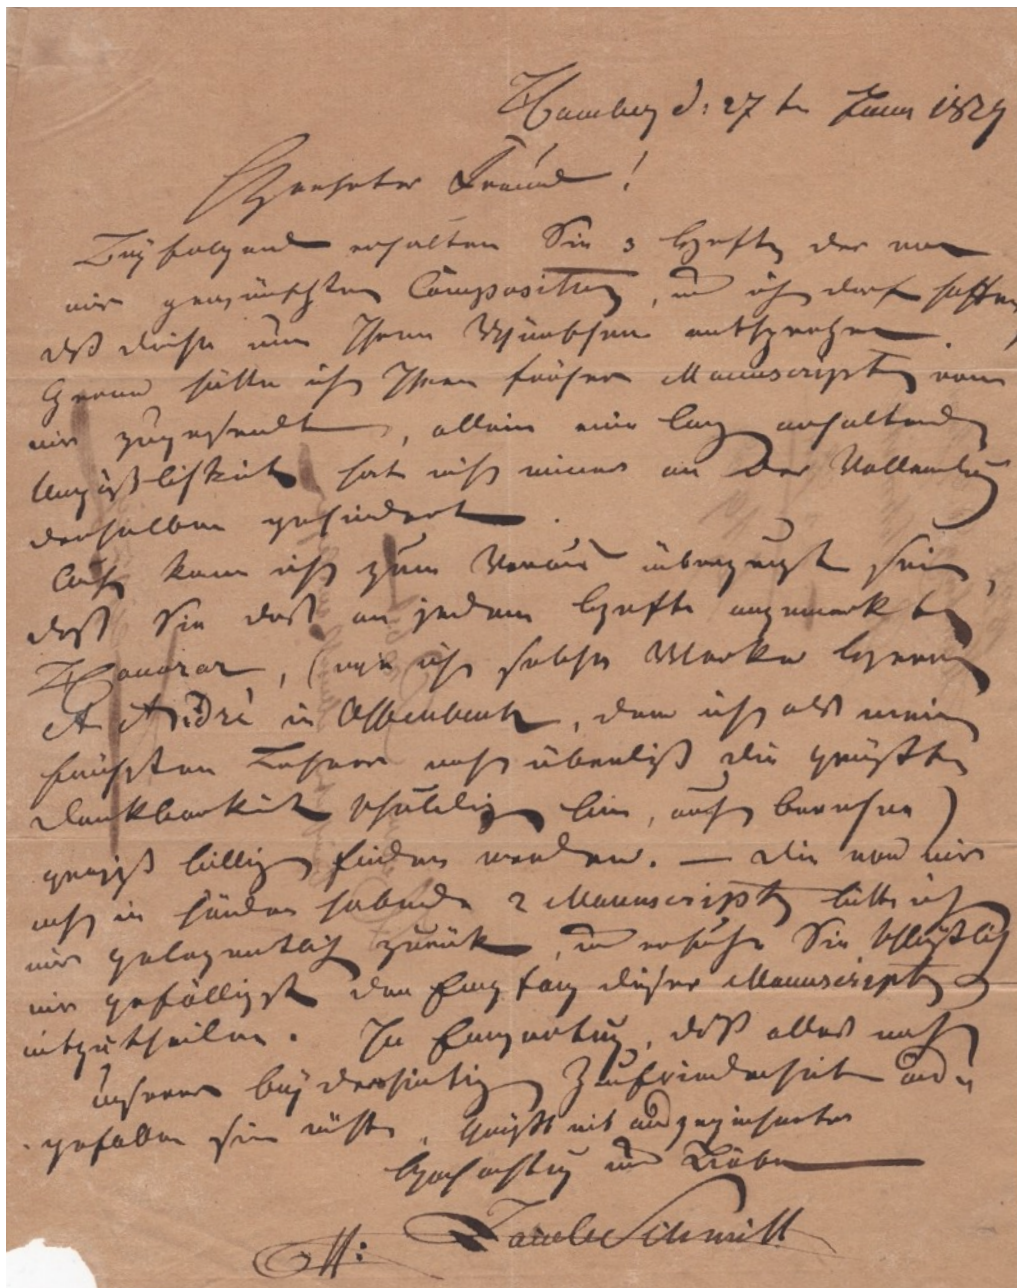 Hamburg d: 27 ten Juni 1829
Geehrter Freund!
Beyfolgend erhalten Sie 3 Hefte der von
mir gewünschten Compositionen, und ich darf hoffen,
daß diese nun Ihren Wünschen entsprechen.
Gerne hätte ich Ihnen früher Manuscripte von
mir zugesendet, allein eine lang anhaltende
Unpäßlichkeit hat mich immer an der Vollendung
derselben gehindert.
Auch kann ich zum Voraus überzeugt sein,
daß Sie daß an jedem Hefte angemerkte
Honorar, (wie ich solche Werke Herrn
A André in Offenbach, dem ich als meinen
frühsten Lehrer noch überdieß die größte
Dankbarkeit schuldig bin, auch berechne)
gewiß billig finden werden. — Die von mir
noch in Händen habende 2 Manuscripte bitte ich
mir gelegentlich zurück, und ersuche Sie schließlich
mir gefälligst den Empfang dieser Manuscripte
mitzutheilen. In Erwartung, daß alles nach
unserer beyderseitigen Zufriedenheit
gefallen sein müsse, grüßt mit ausgezeichneter
Hochachtung und Liebe
Jacob Schmitt